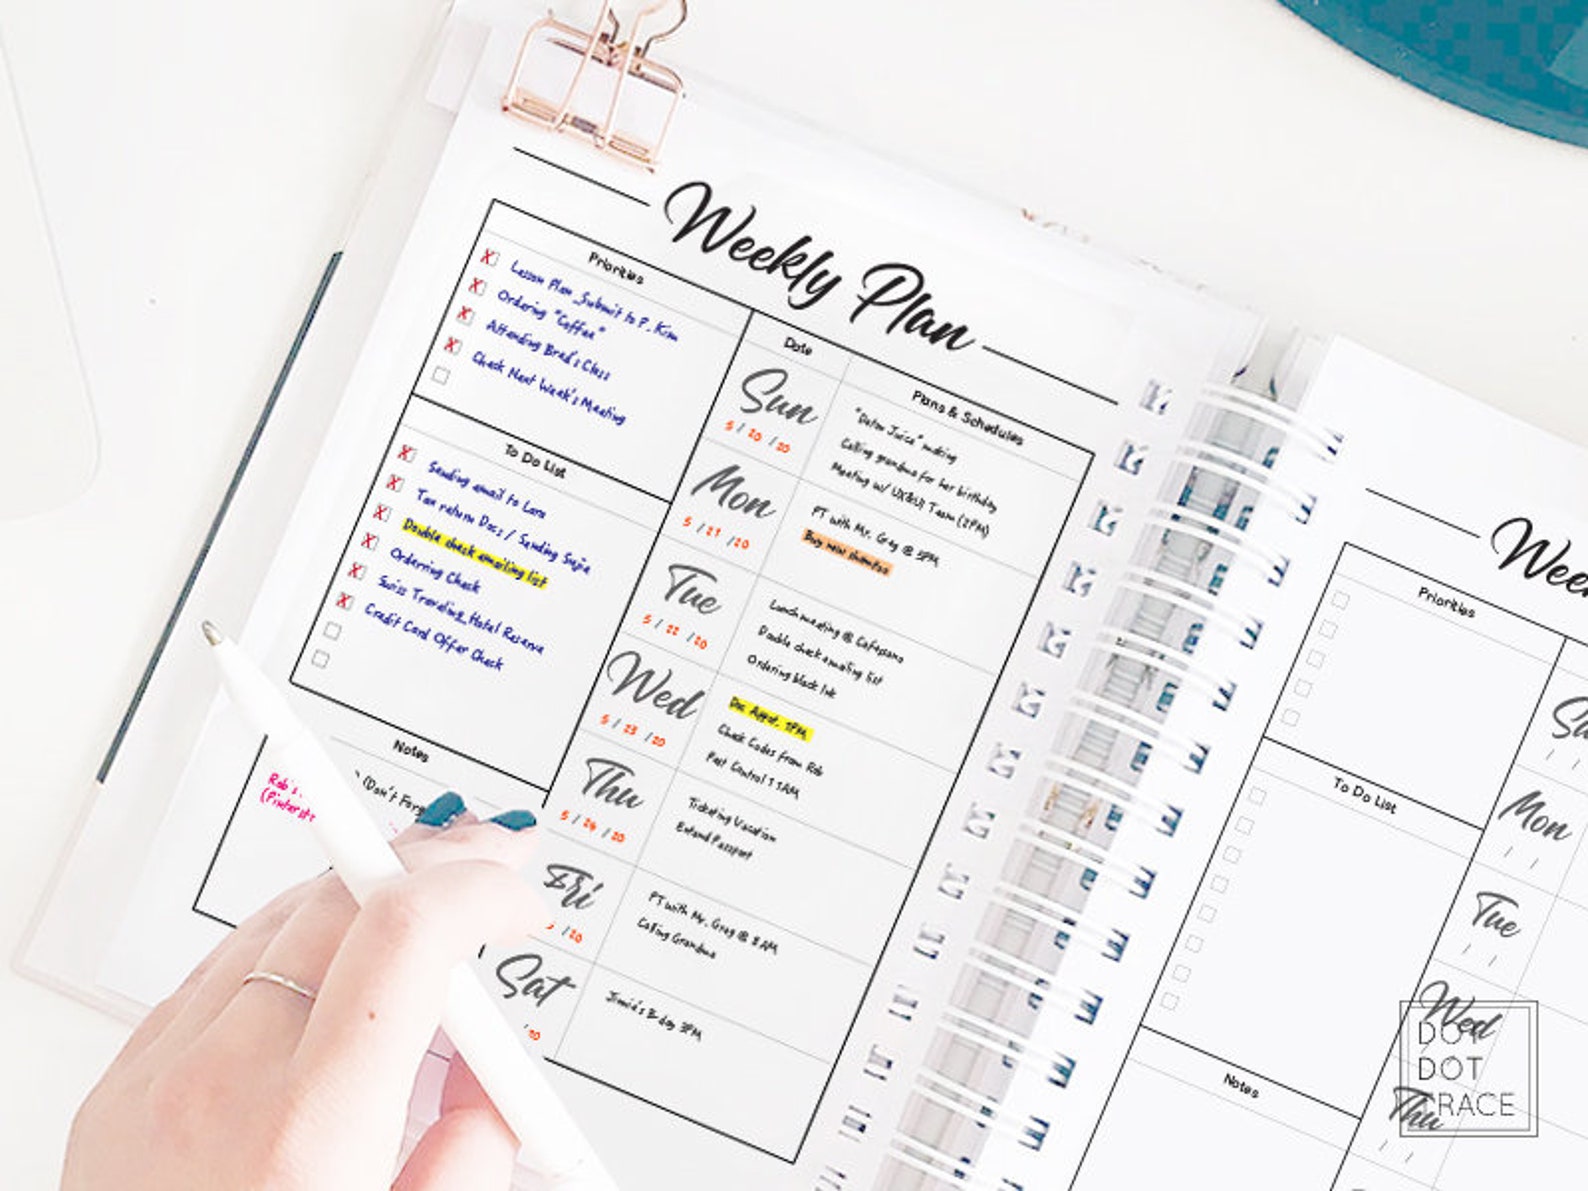 Weekly Plan
Priorities
Lesson Plan_Submit to P. Kim
Ordering "Coffee"
Attending Brad's Class
Check Next Week's Meeting
To Do List
Sending email to Lara
Tax return Docs / Sending
Double check emailing list
Ordering Check
Swiss Traveling_Hotel Reserve
Credit Card Offer Check
Notes
(Don't Forg
Rob's
(Pinterst
Date
Plans & Schedules
Sun
5 / 20 / 20
"Detox Juice" making
Calling grandma for her birthday
Meeting w/ UX&UI Team (2PM)
Mon
5 / 21 / 20
PT with Mr. Greg @ 5PM
Buy new shampoo
Tue
5 / 22 / 20
Lunch meeting @
Double check emailing list
Ordering black ink
Wed
5 / 23 / 20
Doc Appot. 1PM
Check Codes from Rob
Pest Control 11AM
Thu
5 / 24 / 20
Ticketing Vacation
Extend Passport
Fri
/20
PT with Mr. Greg @ 8AM
Calling Grandma
Sat
B-day 3PM
Wee
Priorities
To Do List
Notes
Su
Mon
Tue
Wed
Thu
DOT
DOT
TRACE